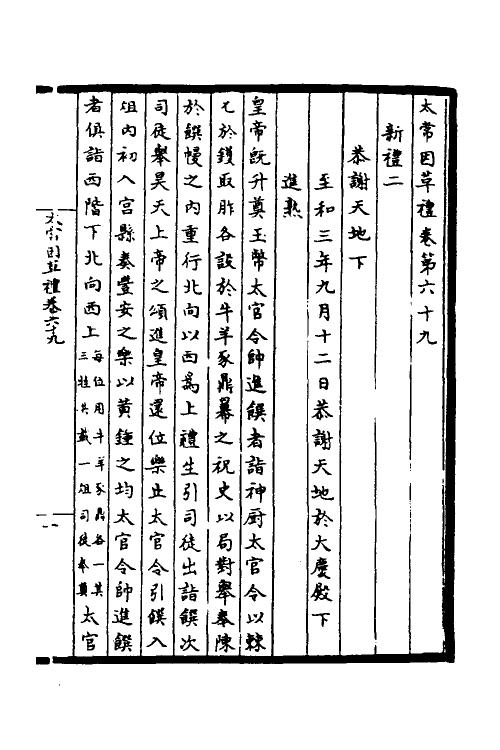 太常因革禮卷第六十九
新禮二
恭謝天地下
至和三年九月十二日恭謝天地於大慶殿下
進熟
皇帝旣升奠玉幣太官令帥進饌者詣神厨太官令以棘
匕於鑊取胙各設於牛羊豕鼎羃之祝史以扃對舉奉陳
於饌幔之內重行北向以西爲上禮生引司徒出詣饌次
司徒舉昊天上帝之俎進皇帝還位樂止太官令引饌入
俎內初入宮縣奏豐安之樂以黃鍾之均太官令帥進饌
者俱詣西階下北向西上每位用牛羊豕鼎各一其三牲共載一俎司徒奉奠太官
太常因革禮卷六十九
一